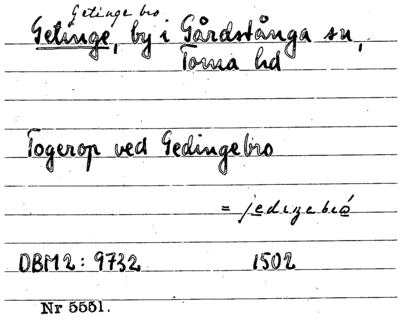 Getinge bro
Getinge, by i Gårdstånga sn,
Torna hd
Togerop ved Gedingebro
=
DBM2: 9732 1502
Nr 5551.